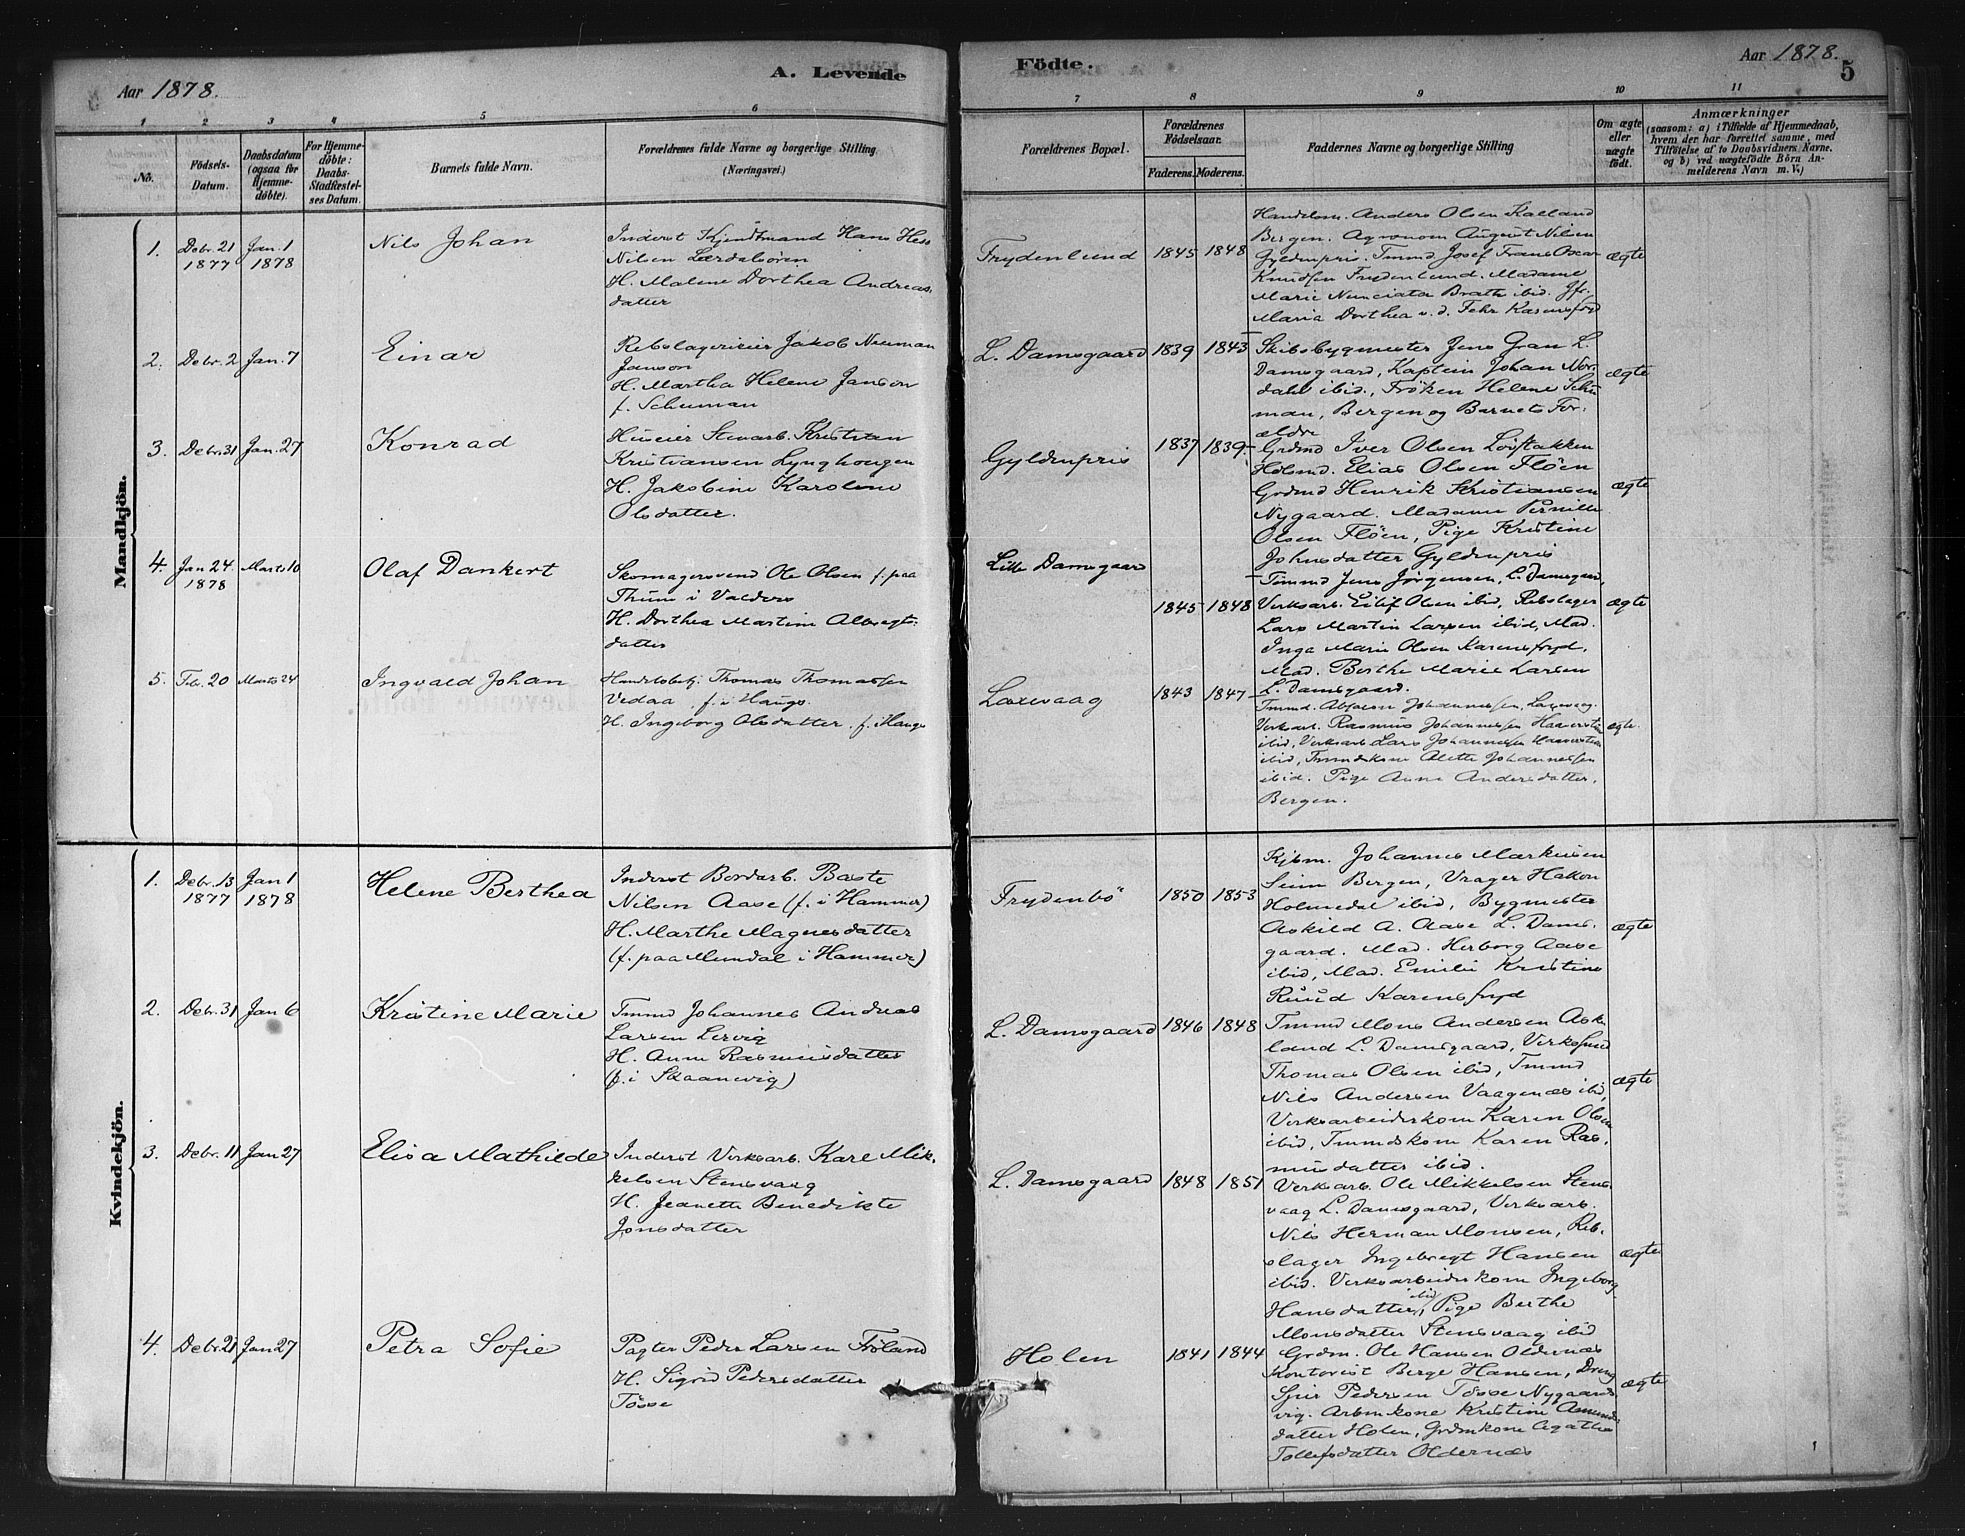 Aar 1878.
A. Levende
Födte.
Aar 1878.
5
1
2
3
4
5
6
7
8
9
10
11
No.
Födsels-
Datum.
Daabsdatum
(ogsaa for
Hjemme-
döbte).
For Hjemme-
döbte:
Daabs-
Stadfæstel-
ses Datum.
Barnets fulde Navn.
Forældrenes fulde Navne og borgerlige Stilling
(Næringsvei.)
Forældrenes Bopæl.
Forældrenes
Födselsaar.
Faderens.
Moderens.
Faddernes Navne og borgerlige Stilling
Om ægte
eller
uægte
födt.
Anmærkninger
(saasom: a) i Tilfælde af Hjemmedaab,
hvem der har forrettet samme, med
Tilföielse af to Daabsvidners Navne,
og b) ved uægtefödte Börn An-
melderens Navn m. V.)
Mandkjön.
1.
Debr. 21
1877
Jan. 1
1878
Nils Johan
Inderst Kjendtmand Hans Hess
Nilsen Lærdalsören
H. Malene Dorthea Andreas-
datter
Frydenlund
1845
1848
Handelsm. Anders Olsen Kalland
Bergen. Agronom August Nilsen
Gyldenpris. Tmmd Josef Frans Oscar
Knudsen Frydenlund. Madame
Marie Nunciata Brath ibid. Jfr.
Maria Dorthea v. d. Fehr Karensfryd
ægte
2.
Debr. 2
Jan. 7
Einar
Rebslagerieier Jakob Neuman
Janson
H. Martha Helene Janson
f. Schuman
L. Damsgaard
1839
1843
Skibsbygmester Jens Gran L.
Damsgaard, Kaptein Johan Nor-
dahl ibid., Fröken Helene Schu
man, Bergen og Barnets For-
ældre
ægte
3.
Debr. 31
Jan. 27
Konrad
Huseier Stenarb. Kristian
Kristiansen Lynghougen
H. Jakobine Karoline
Olsdatter.
Gyldenpris
1837
1839
Grdmd Iver Olsen Löfstakken
Holsmd. Elias Olsen Flöen
Grdmd Henrik Kristiansen
Nygaard. Madame Pernille
Olsen Flöen, Pige Kristine
Johnsdatter Gyldenpris
ægte
4.
Jan 24
1878
Marts 10
Olaf Dankert
Skomagersvend Ole Olsen f. paa
Thune i Valders
H. Dorthea Martine Albregts-
datter
Lille Damsgaard
1845
1848
Tmmd Jens Jörgensen, L. Damsgaar,
Verksarb. Eilif Olsen ibid, Rebslager
Lars Martin Larsen ibid, Mad.
Inga Marie Olsen Karensfryd,
Mad. Berthe Marie Larsen
L. Damsgaard.
ægte
5.
Feb. 20
Marts 24
Ingvald Johan
Handelsbetj. Thomas Thomassen
Vedaa f. i Haugs
H. Ingeborg Olsdatter f. i Haugs
Laxevaag
1843
1847
Tmmd. Absalon Johannessen, Laxevaag.
Verksarb. Rasmus Johannessen
ibid, Verksarb Lars Johannessen
ibid, Tmmdskone Alette Johannessen
ibid. Pige Anna Andersdatter,
Bergen.
ægte.
Kvindekjön.
1.
Debr. 13
1877
Jan 1
1878
Helene Berthea
Inderst Bordarb. Baste
Nilsen Aase (f. i Hammer)
H. Marthe Magnesdatter
(f. paa Mundal i Hammer)
Frydenbö
1850
1853
Kjbm. Johannes Markusen
Seim Bergen, Vrager Hakon
Holmedal ibid, Bygmester
Askild A. Aase L. Dams-
gaard. Mad. Herborg Aase
ibid, Mad. Emilie Kristine
Ruud Karensfryd
ægte
2.
Debr. 31
Jan 6
Kristine Marie
Tmmd Johannes Andreas
Larsen Lervig
H. Anne Rasmusdatter
(f. i Skaanevig)
L. Damsgaard
1846
1848
Tmmd Mons Andersen Ask-
land L. Damsgaard, Verksmd
Thomas Olsen ibid, Tmmd
Nils Andersen Vaagenæs ibid,
Verksarbeiderskone Karen Olsen
ibid, Tmmdskone Karen Ras-
musdatter ibid.
ægte
3.
Debr. 11
Jan 27
Elisa Mathilde
Inderst Verksarb. Karl Mik-
kelsen Stensvaag
H. Jeanette Benedikte
Jonsdatter
L. Damsgaard
1848
1851
Verksarb. Ole Mikkelsen Stens
vaag L. Damsgaard, Verksarb.
Nils Herman Monsen, Reb-
slager Ingebregt Hansen
ibid. Verksarbeiderkone Ingeborg
Hansdatter ibid, Pige Berthe
Monsdatter Stensvaag ibid
ægte
4.
Debr. 21
Jan 27
Petra Sofie
Pagter Peder Larsen Fröland
H. Sigrid Pedersdatter
Tösse
Holen
1841
1844
Grdm. Ole Hansen Oldernæs
Kontorist Berge Hansen, Dreng
Sjur Pedersen Tösse Nygaards
vig. Arbmkone Kristine Amunds-
datter Holen, Grdmkone Agatha
Tollefsdatter Oldernæs
ægte